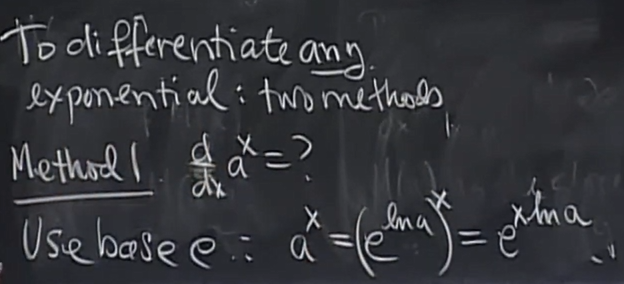 To differentiate any
exponential: two methods
Method 1. d/dx a^x = ?
Use base e: a^x = (e^{ln a})^x = e^{x ln a}